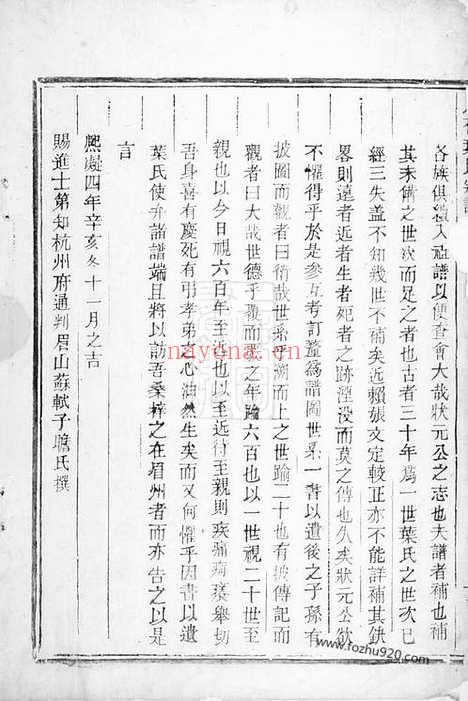 各族俱鈔入祖譜以便查會大哉狀元公之志也夫譜者補也補
其未備之世次而足之者也古者三十年爲一世葉氏之世次已
經三失蓋不知幾世不補矣近賴張文定較正亦不能詳補其鈌
畧則遠者近者生者死者之跡湮没而莫之傳也久矣狀元公欲
不懼得乎於是參互考訂釐爲譜圖世系一書以遺後之子孫有
披圖而觀者曰猗哉世系乎溯而上之世踰二十也有披傳記而
觀者曰大哉世德乎覆而載之年踰六百也以一世視二十世至
親也以今日視六百年至近也以至近待至親則疾痛疴癢舉切
吾身喜有慶死有弔孝弟之心油然生矣而又何懼乎因書以遺
葉氏使弁諸譜端且將以訪吾桑梓之在眉州者而亦告之以是
言
熙凝四年辛亥冬十一月之吉
賜進士第知杭州府通判眉山蘇軾子瞻氏撰
nayona.cn
www.fozhu920.com